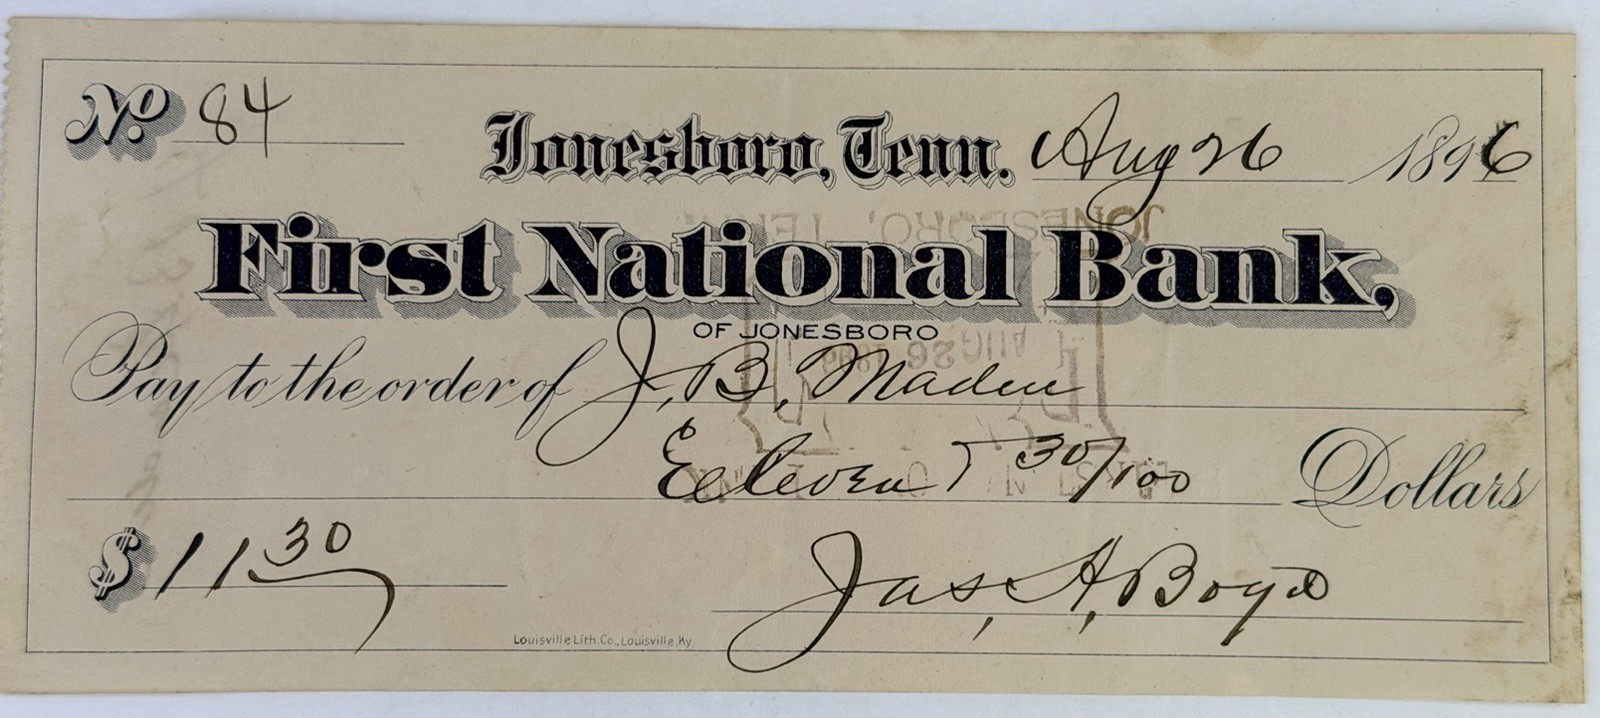 No. 84
Jonesboro, Tenn. Aug 26 1896
First National Bank,
OF JONESBORO
Pay to the order of J. B. Maden
Eleven & 30/100 Dollars
$ 11 30
Jas, A, Boyd
Louisville Lith. Co., Louisville, Ky.
JONESBORO, TENN.
AUG 26